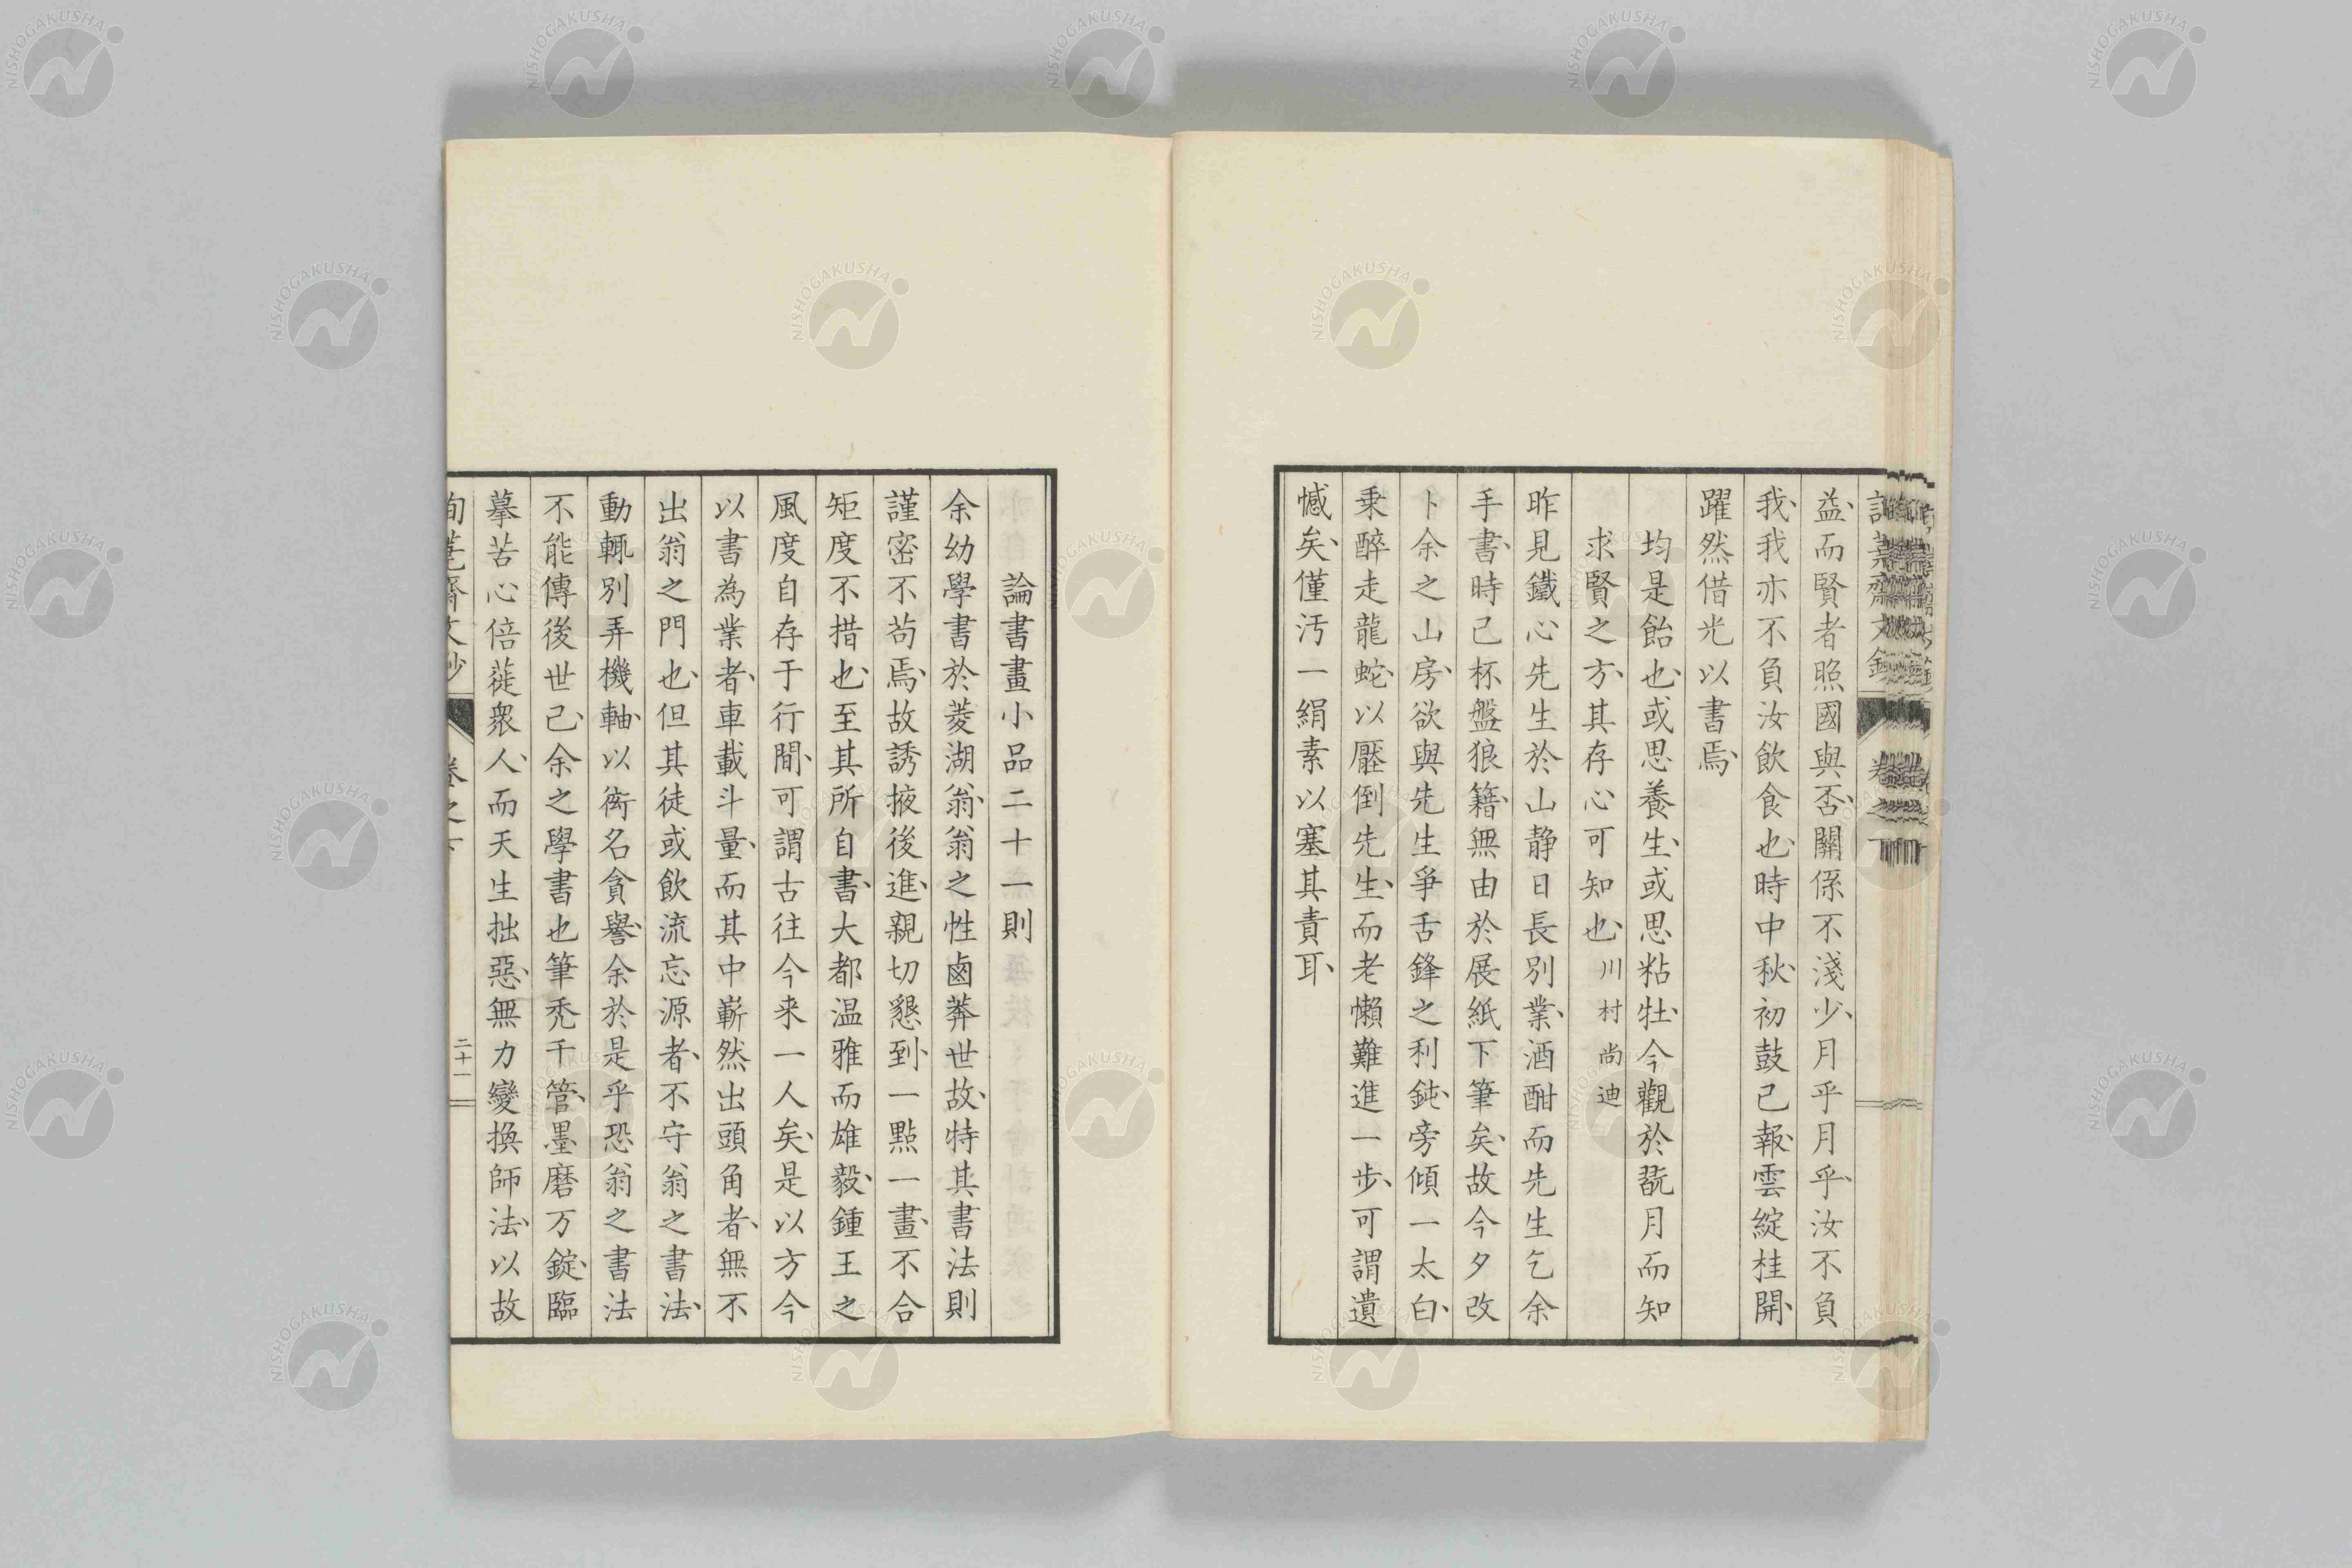 益、而賢者照國與否、關係不淺少、月乎月乎、汝不負
我、我亦不負汝飲食也、時中秋、初鼓已報、雲綻桂開、
躍然借光以書焉、
均是飴也、或思養生、或思粘牡、今觀於翫月而知
求賢之方、其存心可知也、川村尚迪
昨見鐵心先生於山靜日長別業、酒酣而先生乞余
手書、時已杯盤狼籍、無由於展紙下筆矣、故今夕改
卜余之山房、欲與先生爭舌鋒之利鈍、旁傾一太白、
乗醉走龍蛇、以壓倒先生、而老懶難進一步、可謂遺
憾矣、僅汚一絹素以塞其責耳、
論書畫小品二十一則
余幼學書於菱湖翁、翁之性鹵莽世故、特其書法則
謹密不苟焉、故誘掖後進、親切懇到、一點一畫、不合
矩度不措也、至其所自書、大都温雅而雄毅、鍾王之
風度自存于行間、可謂古往今来一人矣、是以方今
以書為業者、車載斗量、而其中嶄然出頭角者、無不
出翁之門也、但其徒或飲流忘源者、不守翁之書法、
動輒別弄機軸、以衒名貪譽、余於是乎恐翁之書法
不能傳後世已、余之學書也筆秃千管、墨磨万錠、臨
摹苦心倍蓰衆人、而天生拙惡、無力變換師法、以故
卷之下
二十一